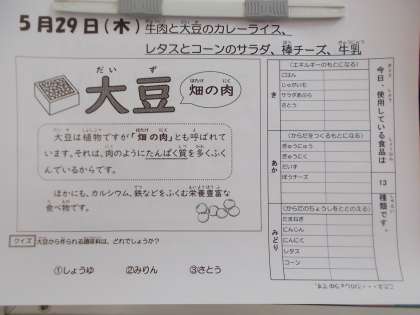 5月29日(木) 牛肉と大豆のカレーライス、
レタスとコーンのサラダ、棒チーズ、牛乳
だいず
大豆
はたけ にく
畑の肉
大豆は植物ですが「畑の肉」とも呼ばれて
います。それは、肉のようにたんぱく質を多くふく
んでいるからです。
ほかにも、カルシウム、鉄などをふくむ栄養豊富な
食べ物です。
クイズ 大豆から作られる調味料は、どれでしょうか?
①しょうゆ ②みりん ③さとう
今日、使用している食品は 13 種類です。
き
(エネルギーのもとになる)
ごはん
じゃがいも
サラダあぶら
さとう
あか
(からだをつくるもとになる)
ぎゅうにゅう
ぎゅうにく
だいず
ぼうチーズ
みどり
(からだのちょうしをととのえる)
たまねぎ
にんじん
にんにく
レタス
コーン